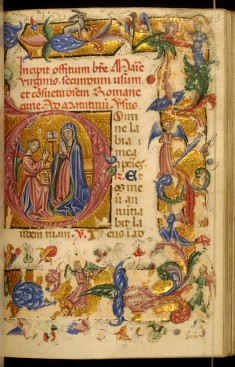 Incipit offitium bte Marie
virginis. secundum usum
et consuetudinem Romane
curie. Ad matutinū. V̄sus
Dom
ne la
bia
mea
apies.
R. Et
os me
ū an
nūtia
bit la
udem tuam. V.
eus i ad